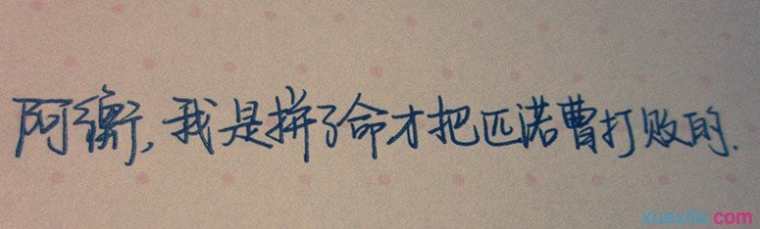 阿衡,我是拼了命才把匹诺曹打败的.